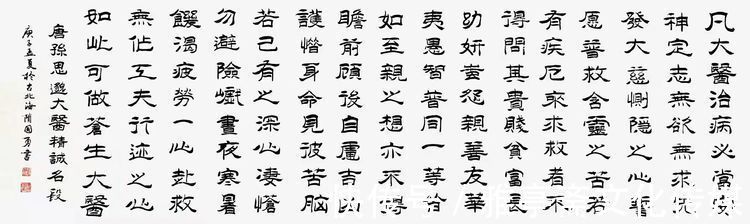 凡大醫治病必當安
神定志無欲無求先
發大慈惻隱之心誓
願普救含靈之苦若
有疾厄來求救者不
得問其貴賤貧富長
幼妍蚩怨親善友華
夷愚智普同一等皆
如至親之想亦不得
瞻前顧後自慮吉凶
護惜身命見彼苦惱
若己有之深心淒愴
勿避險巇晝夜寒暑
饑渴疲勞一心赴救
無作工夫行迹之心
如此可做蒼生大醫
唐孫思邈大醫精誠名段
庚子夏於古北海國書